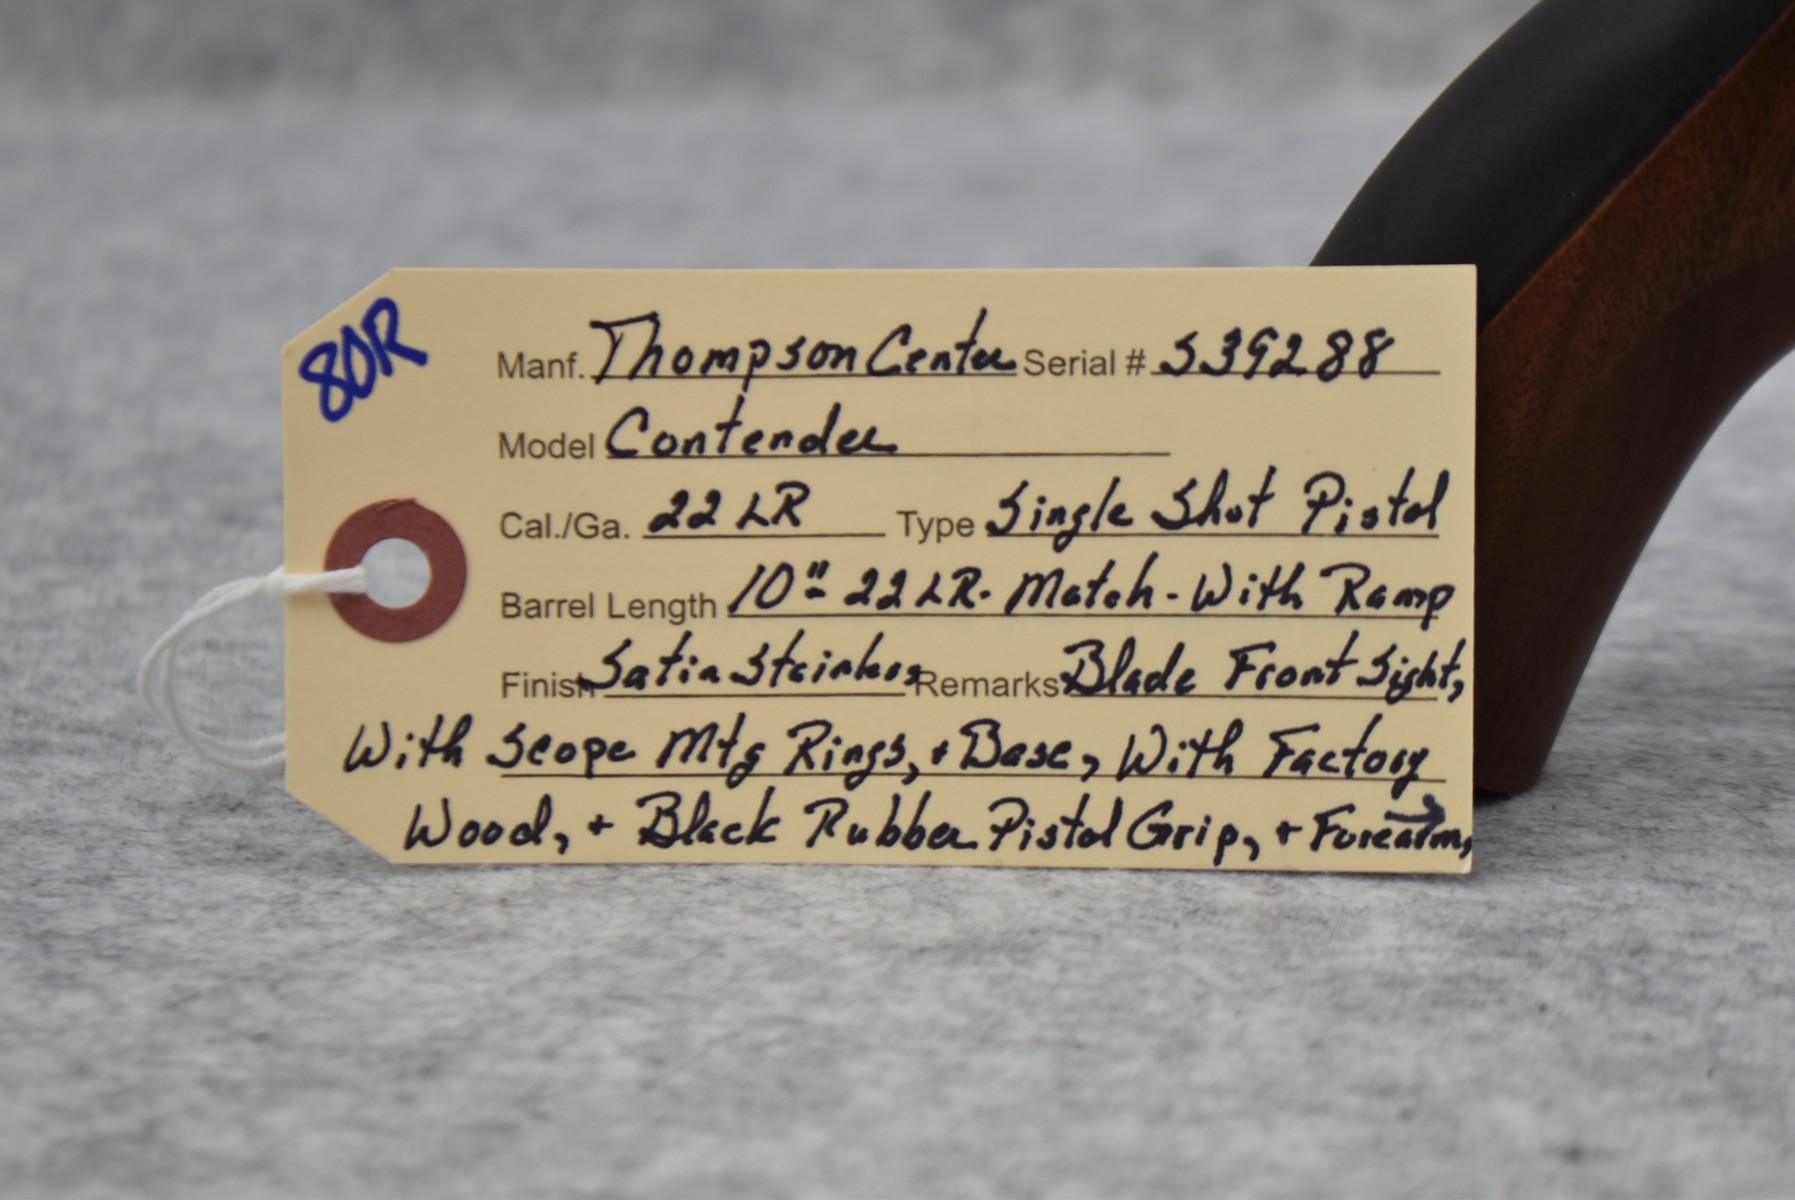 80R
Manf. Thompson Center Serial # S39288
Model Contender
Cal./Ga. 22 LR Type Single Shot Pistol
Barrel Length 10" 22 LR. Match - With Ramp
Finish Satin Stainless Remarks Blade Front Sight,
With Scope Mtg Rings, + Base, With Factory
Wood, + Black Rubber Pistol Grip, + Forearm, →